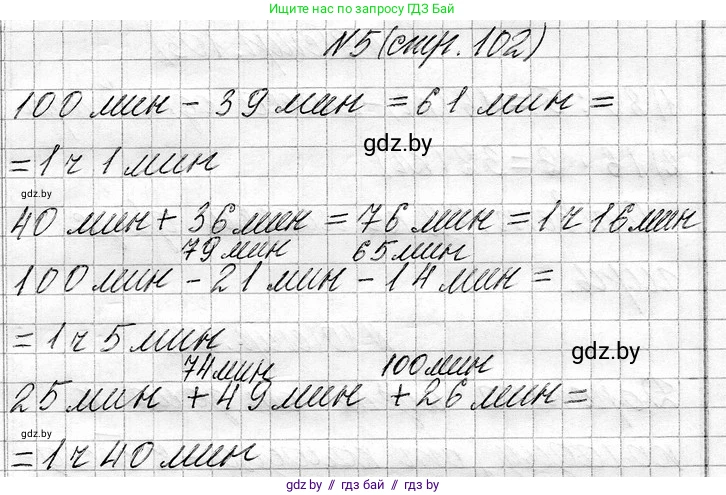 Ищите нас по запросу ГДЗ Бай
№5 (стр. 102)
100 мин - 39 мин = 61 мин =
gdz.by
= 1 ч 1 мин
gdz.by
40 мин + 36 мин = 76 мин = 1 ч 16 мин
79 мин 65 мин
100 мин - 21 мин - 14 мин =
= 1 ч 5 мин
gdz.by
74 мин 100 мин
25 мин + 49 мин + 26 мин =
gdz.by
= 1 ч 40 мин
gdz.by // гдз бай // gdz.by